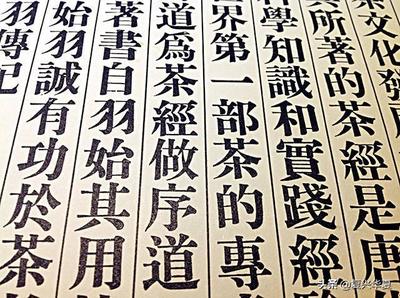 茶文化發展
其所著的茶經是唐
科學知識和實踐經
世界第一部茶的專
道為茶經做序道
著書自羽始其用
始羽誠有功於茶
羽傳記
头条